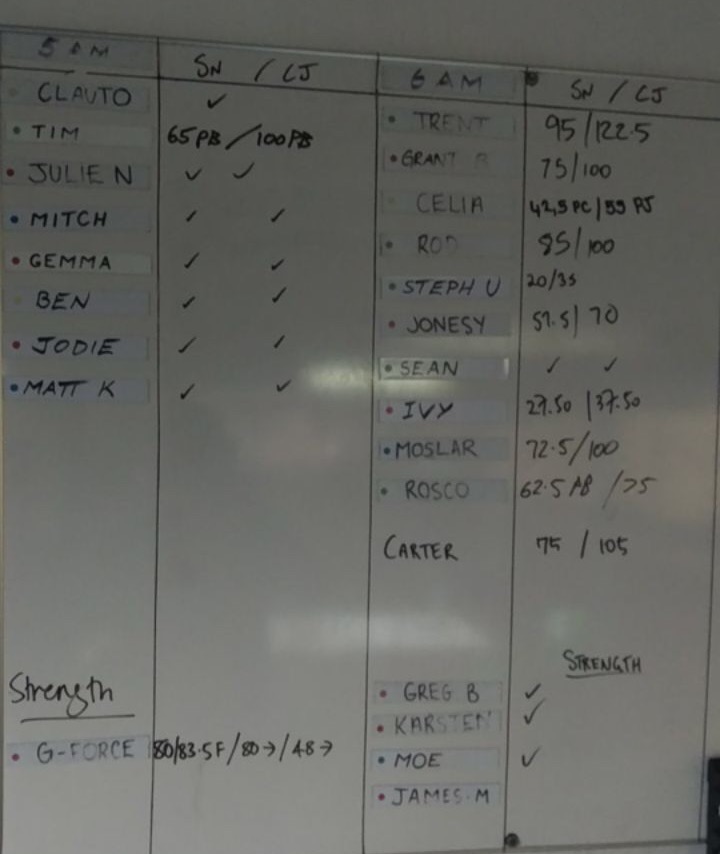 5 AM
SN / CJ
CLAUTO ✓
TIM 65 PB / 100 PB
JULIE N ✓ ✓
MITCH ✓ ✓
GEMMA ✓ ✓
BEN ✓ ✓
JODIE ✓ ✓
MATT K ✓ ✓
Strength
G-FORCE 80/83.5F/80→/48→
6 AM
SN / CJ
TRENT 95/122.5
GRANT B 75/100
CELIA 42,5 PC/55 PJ
ROD 85/100
STEPH U 20/35
JONESY 57.5/70
SEAN ✓ ✓
IVY 27.50/37.50
MOSLAR 72.5/100
ROSCO 62.5 PB /75
CARTER 75 / 105
STRENGTH
GREG B ✓
KARSTEN ✓
MOE ✓
JAMES M